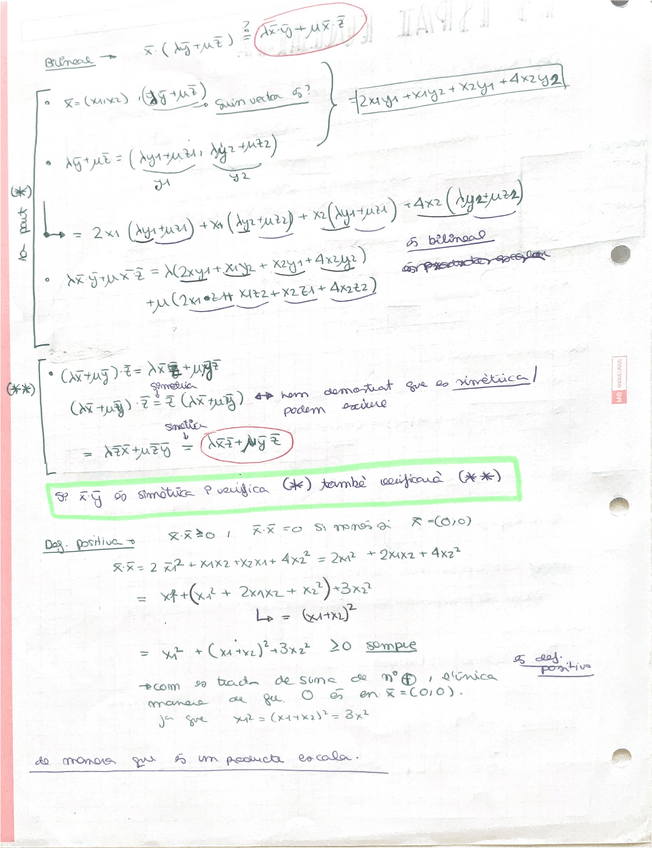 Bilineal → x̄·(λȳ+μz̄) ?= λx̄·ȳ+μx̄·z̄
• x̄=(x1,x2) · (λȳ+μz̄) → Quin vector és? = 2x1y1+x1y2+x2y1+4x2y2
• λȳ+μz̄ = (λy1+μz1, λy2+μz2)
y1 y2
(*)
→ = 2x1(λy1+μz1)+x1(λy2+μz2)+x2(λy1+μz1)+4x2(λy2+μz2)
és bilineal
• λx̄ȳ+μx̄z̄ = λ(2x1y1+x1y2+x2y1+4x2y2)
+μ(2x1z1+x1z2+x2z1+4x2z2)
(**)
• (λx̄+μȳ)·z̄ = λx̄z̄+μȳz̄
simetria
(λx̄+μȳ)·z̄ = z̄(λx̄+μȳ) ↔ hem demostrat que es simètrica/
podem escriure
simetria
= λz̄x̄+μz̄ȳ = λx̄z̄+μȳz̄
Si x̄·ȳ és simètrica i verifica (*) també verificarà (**)
Def. positiva → x̄·x̄≥0, x̄·x̄=0 si només si x̄=(0,0)
x̄·x̄ = 2x1²+x1x2+x2x1+4x2² = 2x1²+2x1x2+4x2²
= x1²+(x1²+2x1x2+x2²)+3x2²
↳ = (x1+x2)²
= x1²+(x1+x2)²+3x2² ≥0 sempre
és def. positiva
→ com es tracta de suma de nº ⊕, l'única
manera de que 0 és en x̄=(0,0).
ja que x1²=(x1+x2)²=3x²
de manera que és un producte escala.